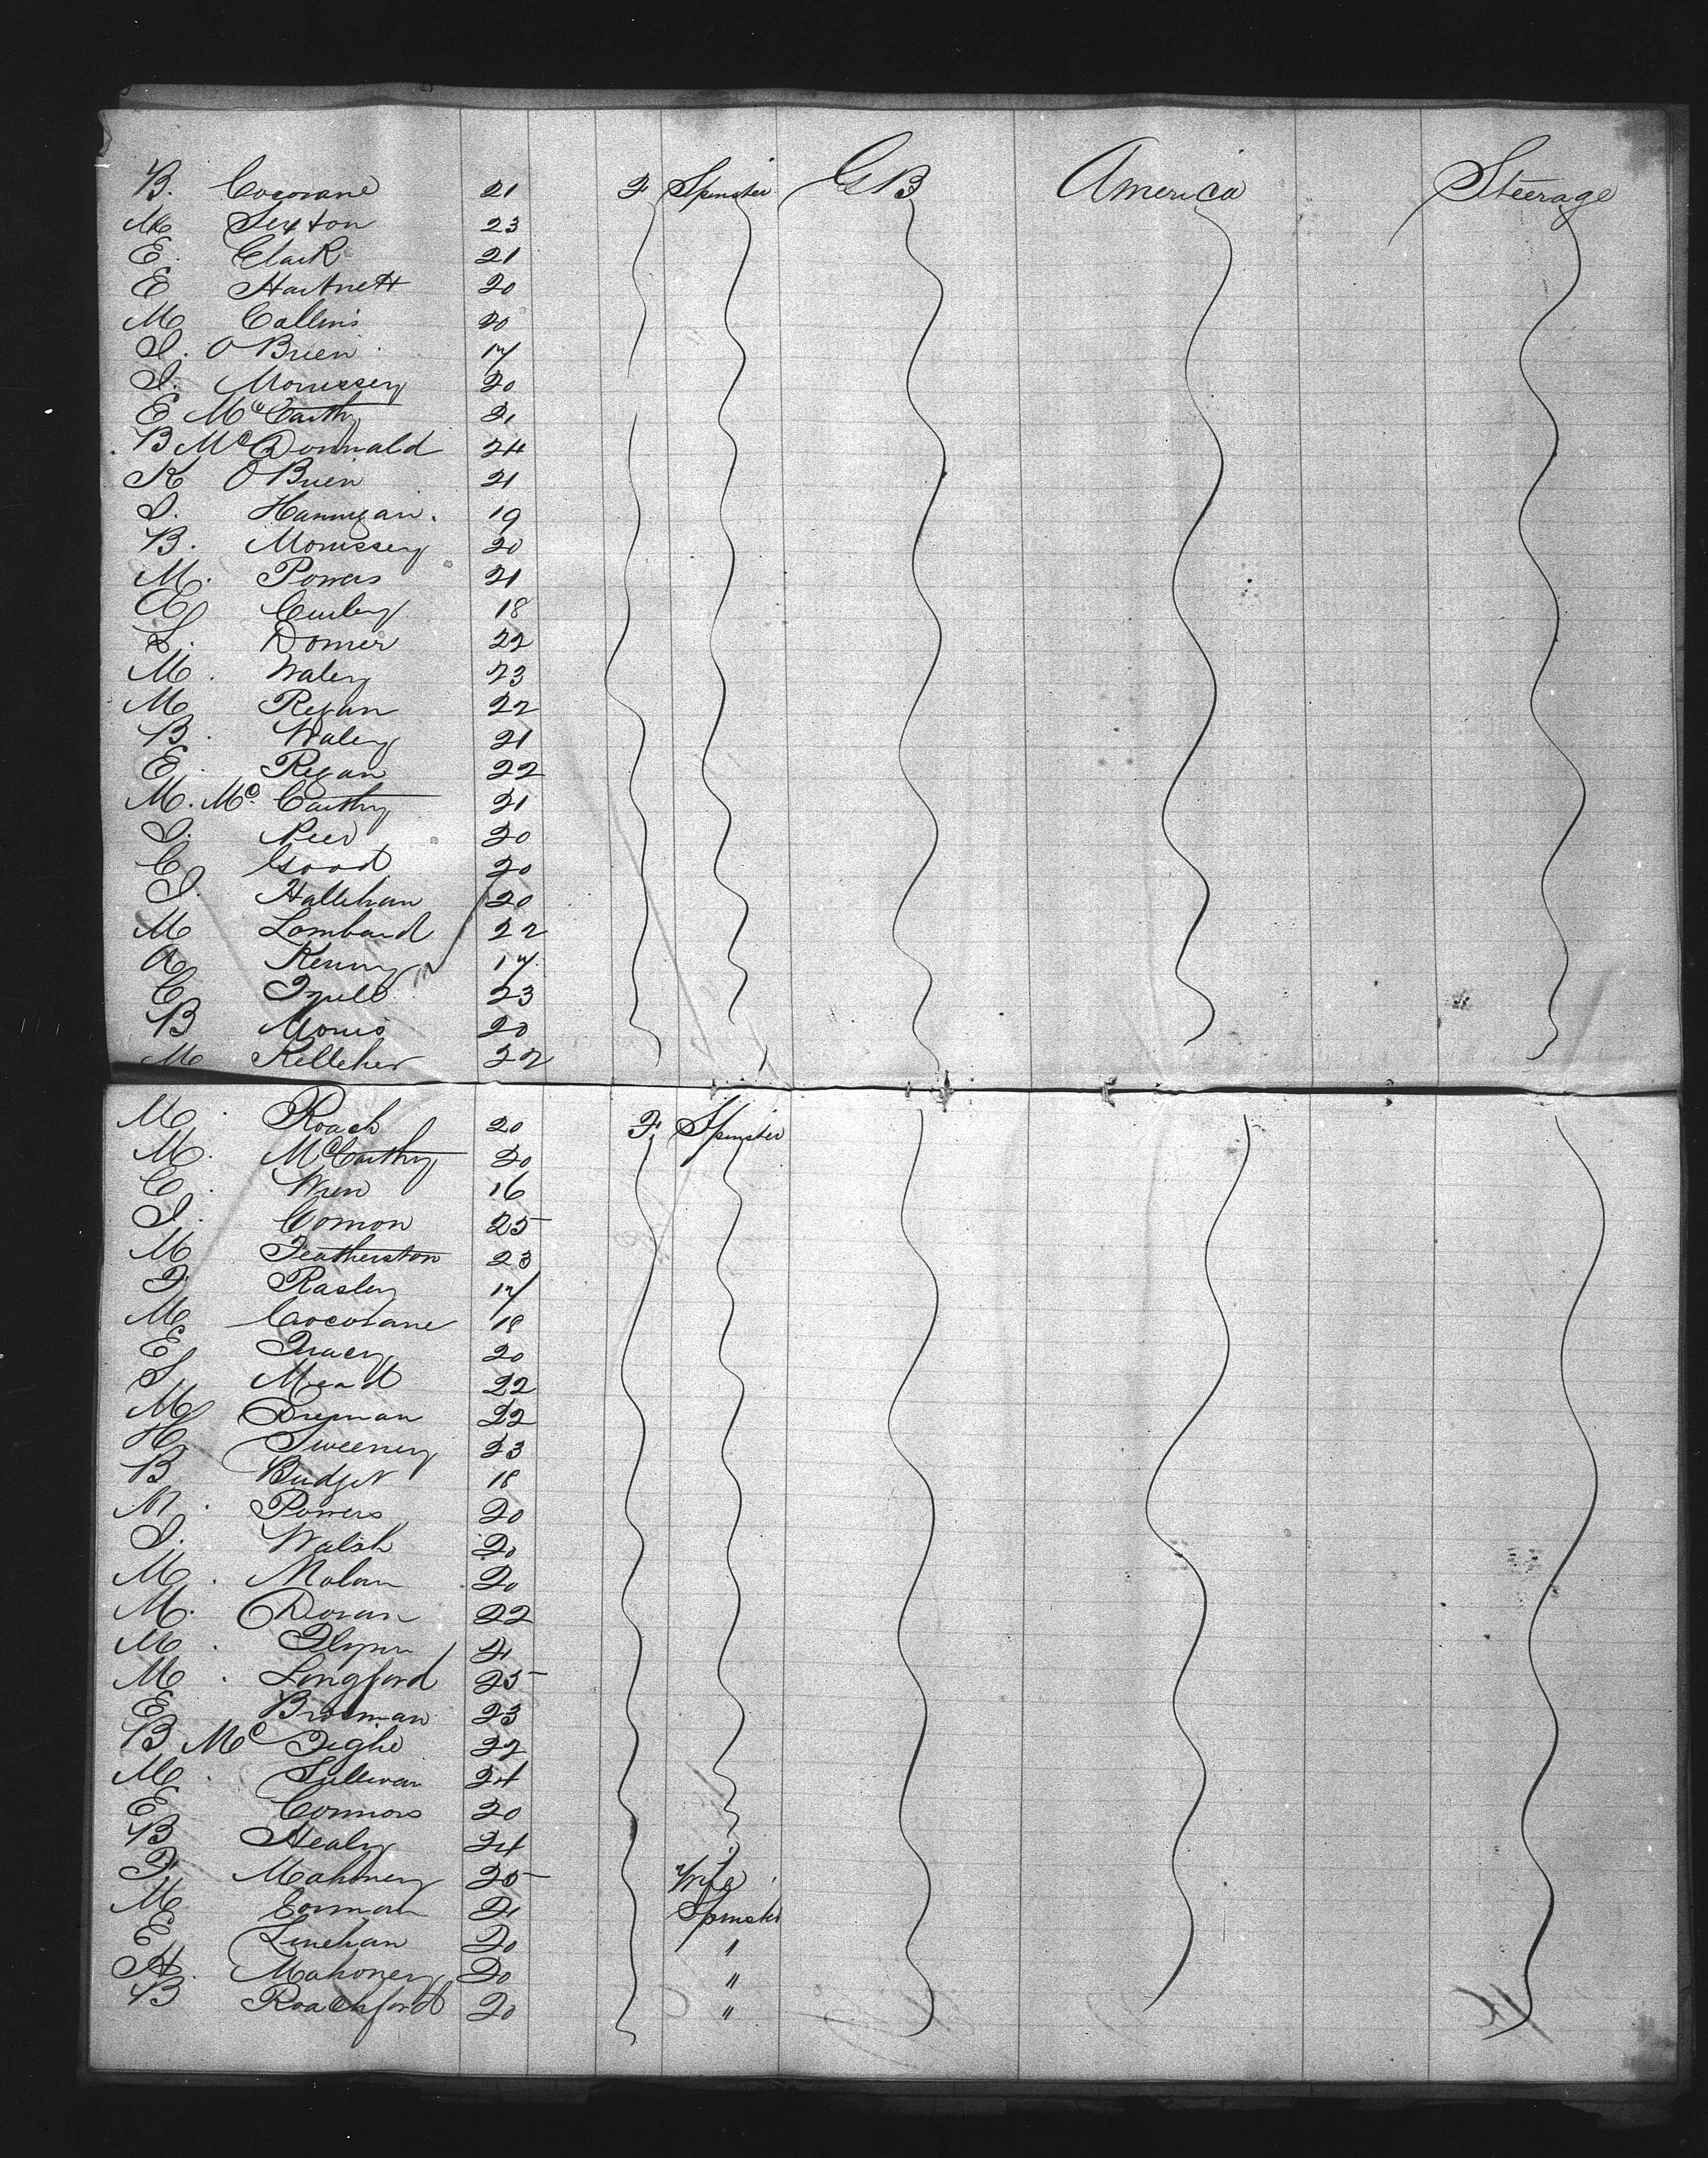 B. Cocorane 21 F Spinster GB America Steerage
M Sexton 23
E. Clark 21
E Hartnett 20
M Collins 20
J. O Brien 17
J. Morrissey 20
E McCarthy 21
B McDonnald 24
K O Brien 21
J. Hannigan. 19
B. Morrissey 20
M. Powers 21
E Curley 18
L. Domer 22
M. Waley 23
M Regan 22
B. Waley 21
E. Regan 22
M. Mc Carthy 21
J. 20
C Good 20
J. Hallehan 20
M Lombard 22
A Kenny 17
C 23
B Morris 20
M Kelleher 22
M. Roach 20 F Spinster
M. McCarthy 20
C. Wren 16
J. Connon 25
M Featherston 23
F Rasley 17
M Crocorane 18
E Tracy 20
S Mead 22
M Brennan 22
H Sweeney 23
B Budget 18
M. Powers 20
J. Walsh 20
M. Nolan 20
M. Doran 22
M. Flynn 21
M. Longford 25
E Brosman 23
B Mc Tighe 22
M. Sullivan 24
E Connors 20
B Healy 24
F Mahoney 25 Wife
M Gorman 21 Spinster
E Linehan 20 "
H. Mahoney 20 "
B Roachford 20 "